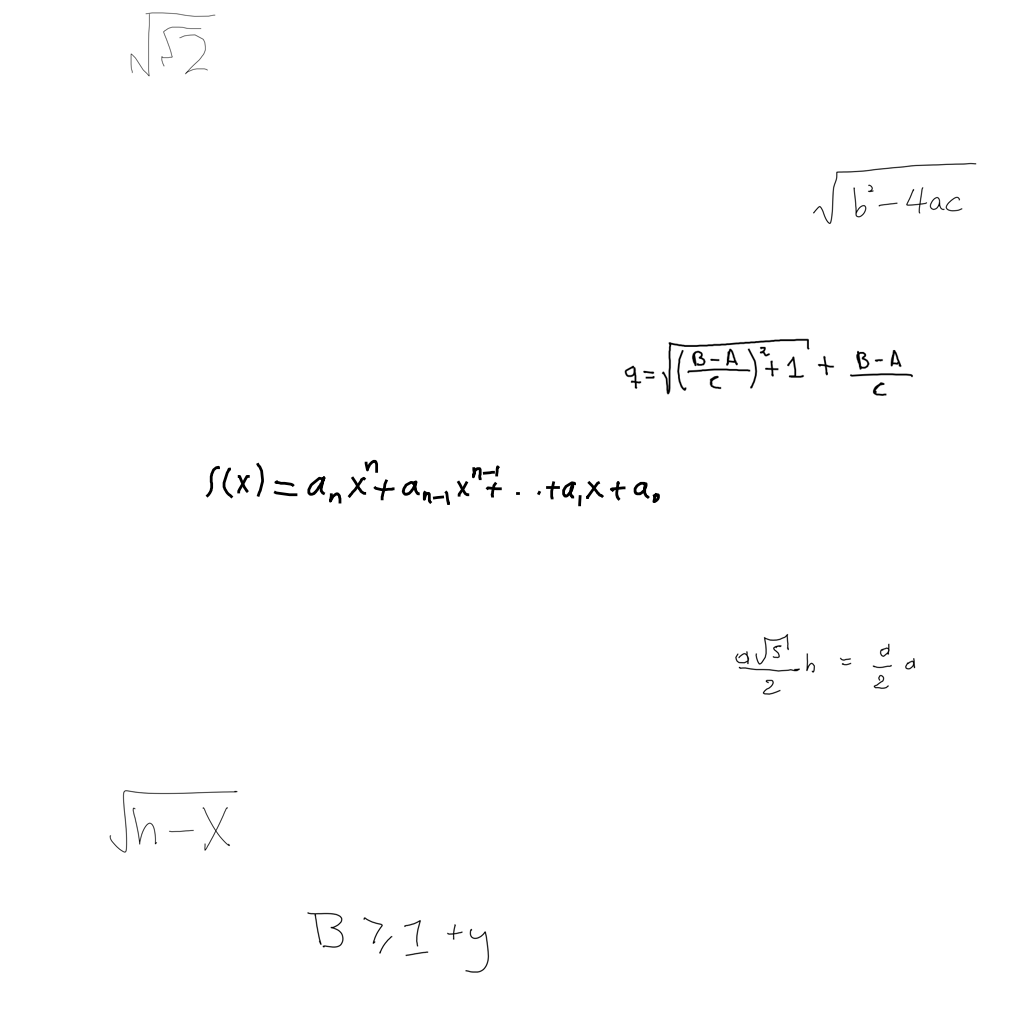 √√2
√(b² − 4ac)
q = √(((B − A)/C)² + 1) + (B − A)/C
f(x) = aₙxⁿ + aₙ₋₁xⁿ⁻¹ + ... + a₁x + a₀
(a√5)/2 h = a/2 a
√(h − X)
B ⩾ 1 + y